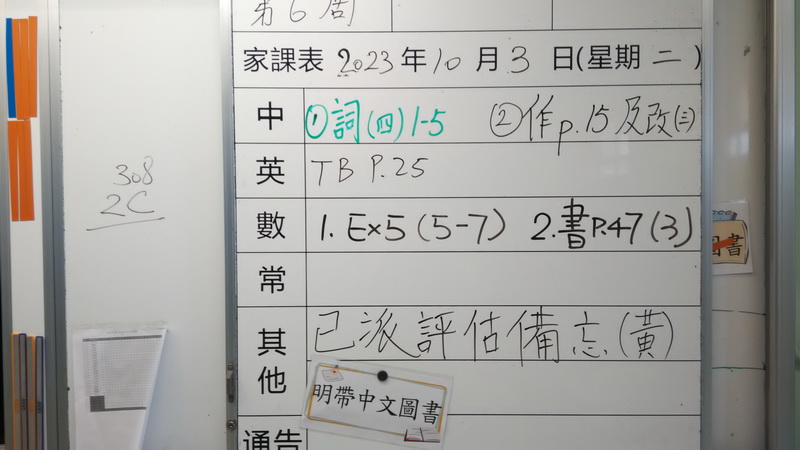 第6周
家課表 2023年10月3日(星期二)
中 ①詞(四)1-5 ②作p.15及改(三)
英 TB P.25
308
2C
數 1. Ex5(5-7) 2.書P.47(3)
圖書
常
其他 已派評估備忘(黃)
明帶中文圖書
通告